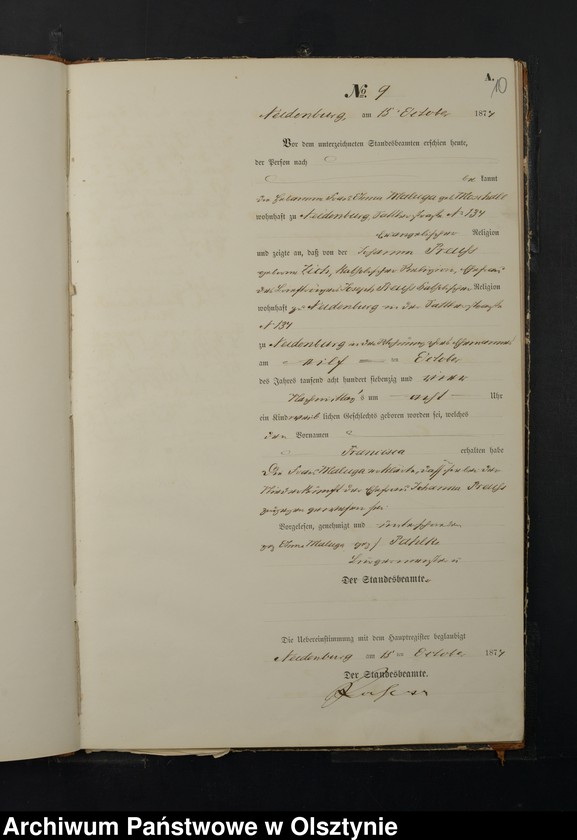 A.
10
No. 9
Neidenburg, am 15 October 1874
Vor dem unterzeichneten Standesbeamten erschien heute,
der Person nach
kannt
Die Hebamme Frau Maluga geb
wohnhaft zu Neidenburg, No 134
evangelischer Religion
und zeigte an, daß von der Johanna Preuss
geborene katholischer Religion, Ehefrau
des Joseph Preuss katholischer Religion
wohnhaft zu Neidenburg in der
No 134
zu Neidenburg in der Wohnung ihres Ehemannes
am elf ten October
des Jahres tausend acht hundert siebenzig und vier
Nachmittags um acht Uhr
ein Kind weiblichen Geschlechts geboren worden sei, welches
den Vornamen
Francisca
erhalten habe
Die Frau Maluga erklärte, daß sie bei der
Niederkunft der Ehefrau Johanna Preuss
zugegen gewesen sei
Vorgelesen, genehmigt und unterschrieben
gez Maluga gez)
Bürgermeister
Der Standesbeamte.
Die Uebereinstimmung mit dem Hauptregister beglaubigt
Neidenburg am 15 ten October 1874
Der Standesbeamte.
Archiwum Państwowe w Olsztynie